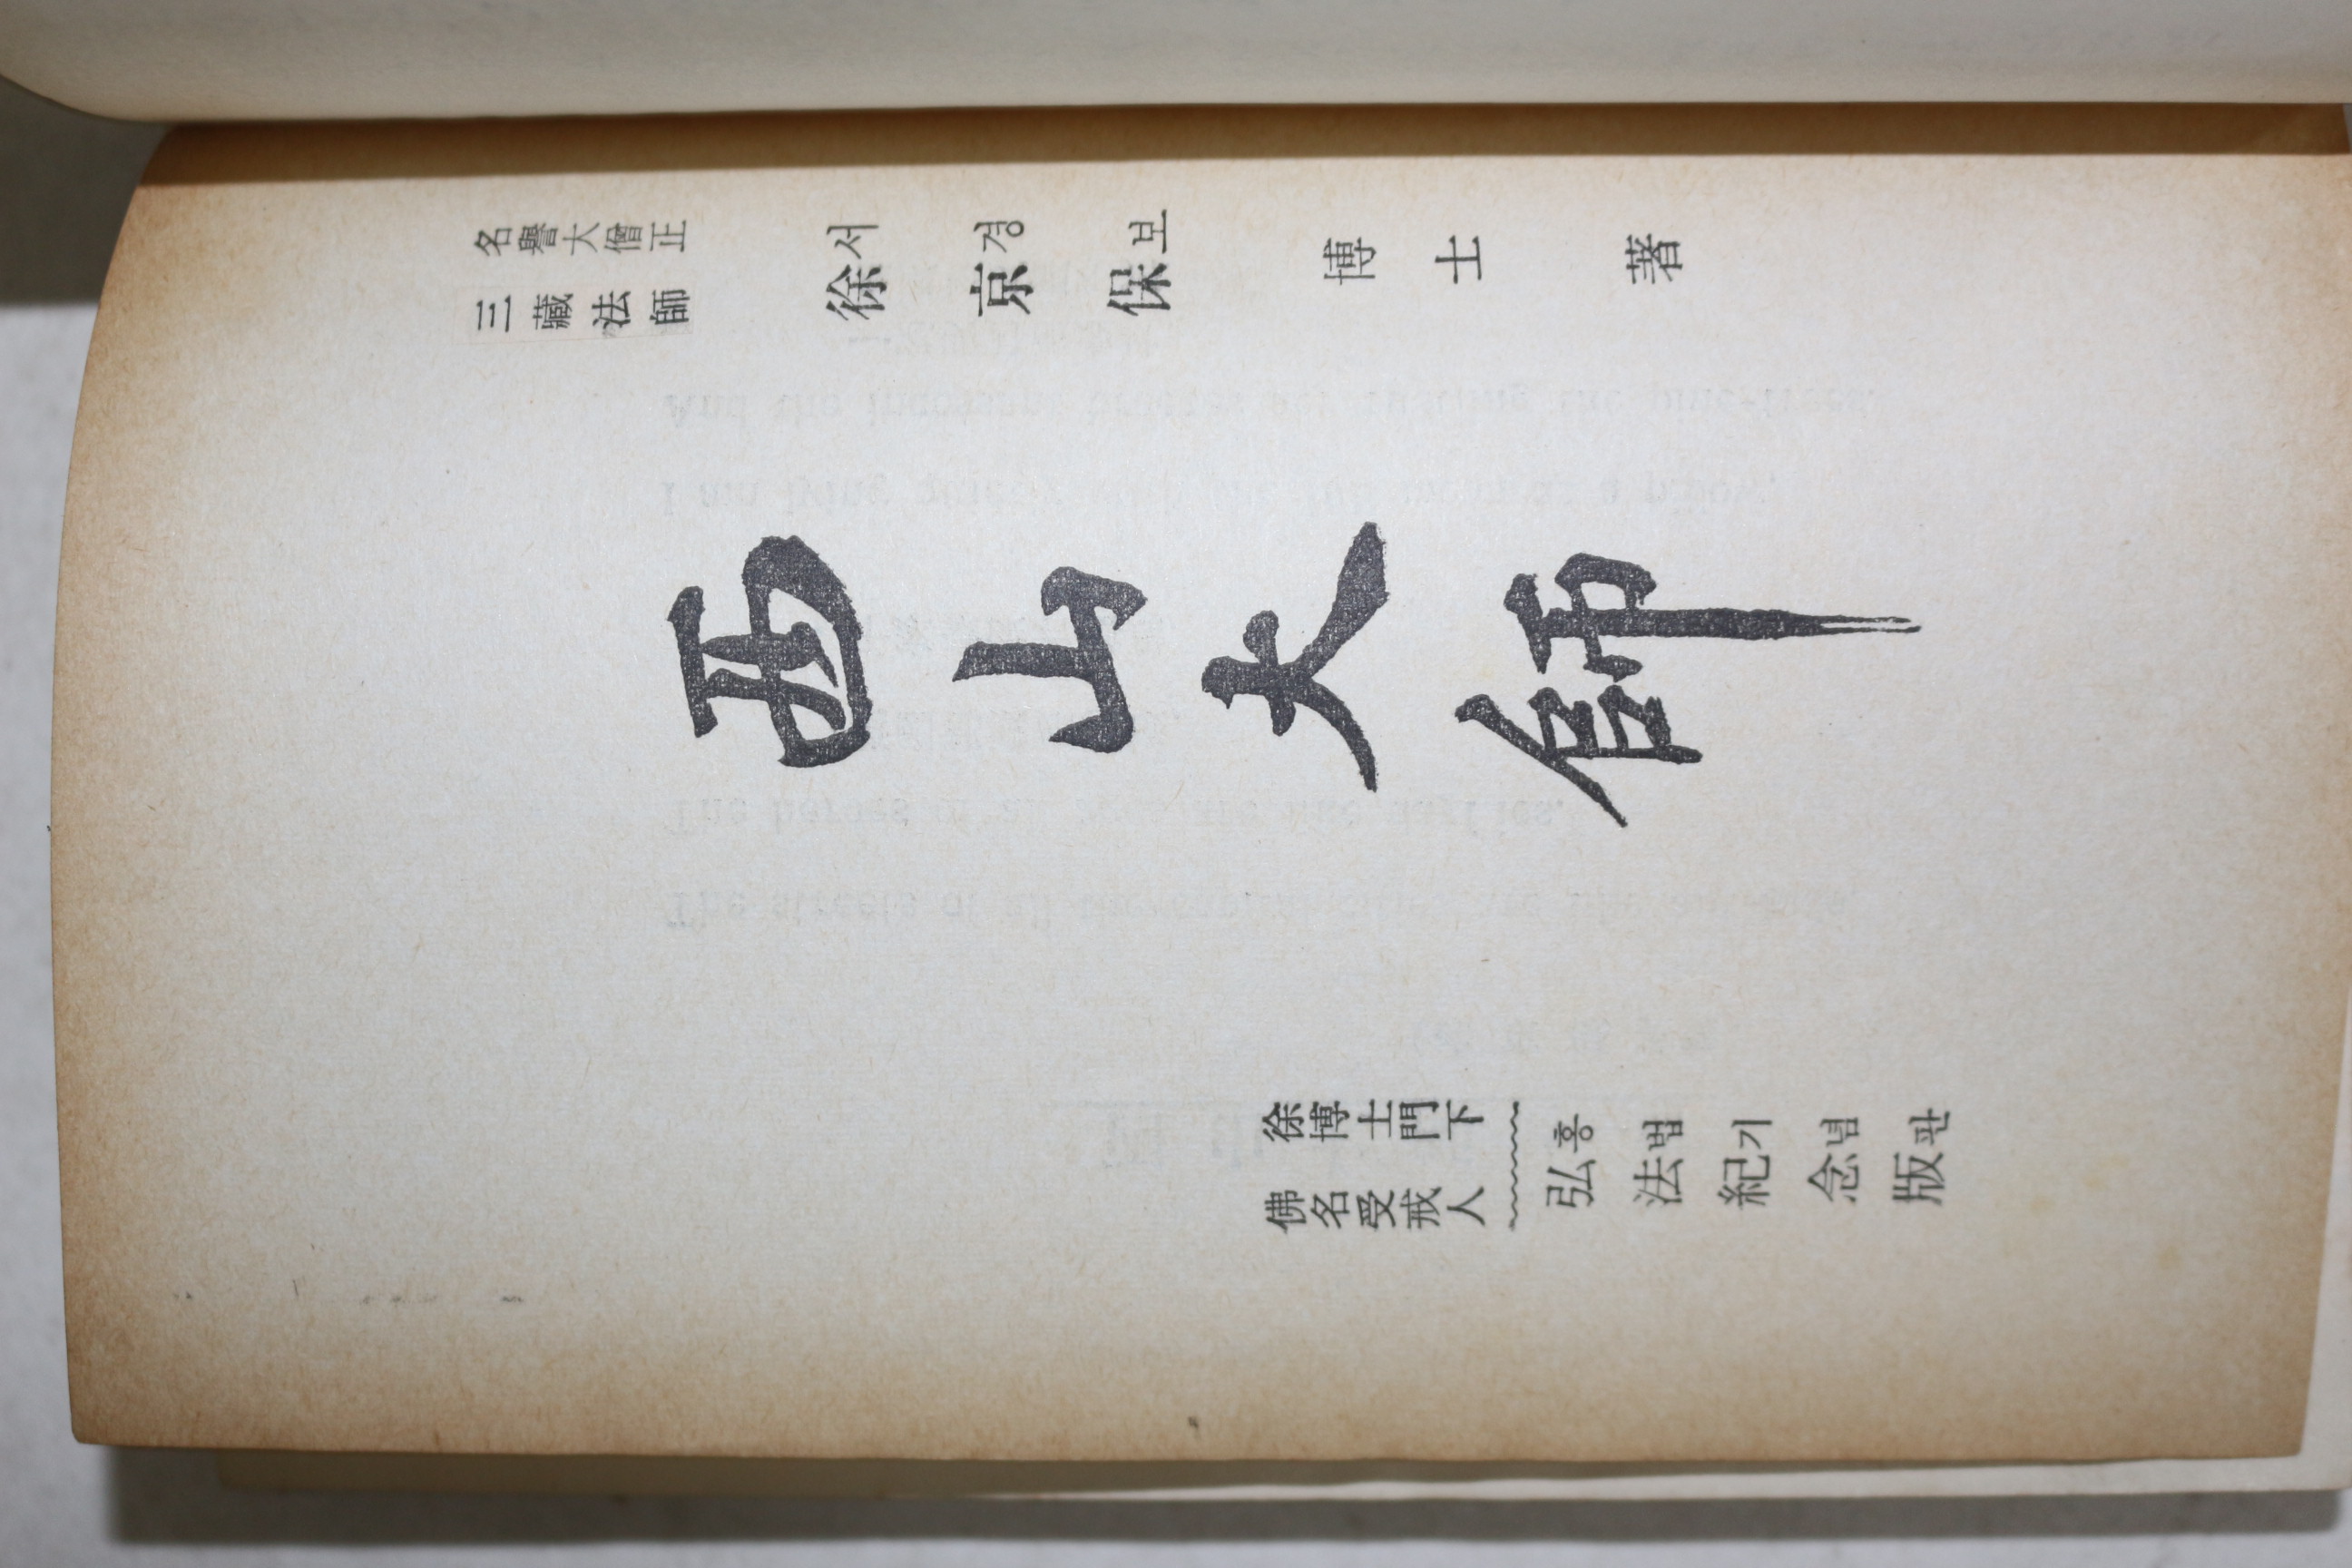 名譽大僧正
三藏法師
徐京保 博士 著
서경보
西山大師
徐博士門下
佛名受戒人
弘法紀念版
홍법기념판